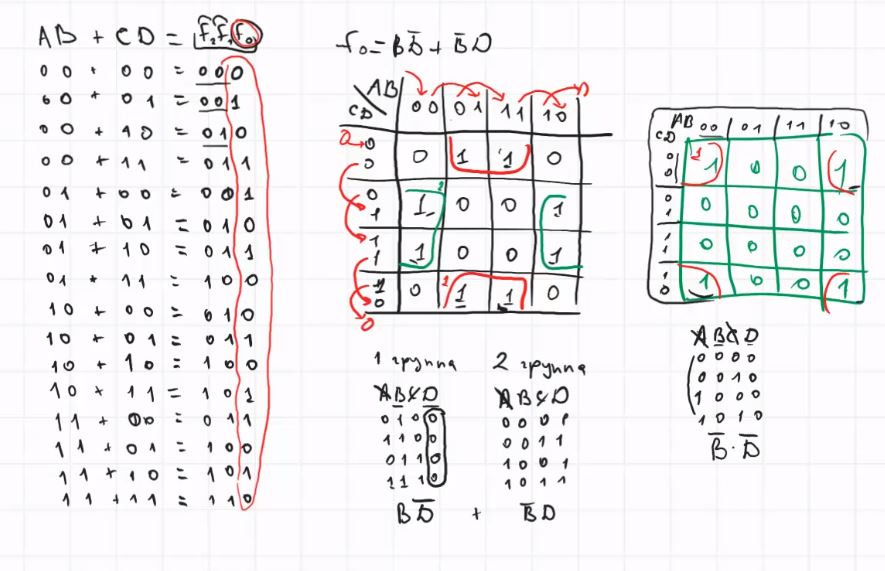 AB + CD = f₂f₁f₀
00 + 00 = 000
00 + 01 = 001
00 + 10 = 010
00 + 11 = 011
01 + 00 = 001
01 + 01 = 010
01 + 10 = 011
01 + 11 = 100
10 + 00 = 010
10 + 01 = 011
10 + 10 = 100
10 + 11 = 101
11 + 00 = 011
11 + 01 = 100
11 + 10 = 101
11 + 11 = 110
f₀ = BD̅ + B̅D
AB
CD 00 01 11 10
00 0 1 1 0
01 1 0 0 1
11 1 0 0 1
10 0 1 1 0
1 группа
ABCD
0100
1100
0110
1110
BD̅
+
2 группа
ABCD
0001
0011
1001
1011
B̅D
AB
CD 00 01 11 10
00 1 0 0 1
01 0 0 0 0
11 0 0 0 0
10 1 0 0 1
ABCD
0000
0010
1000
1010
B̅·D̅